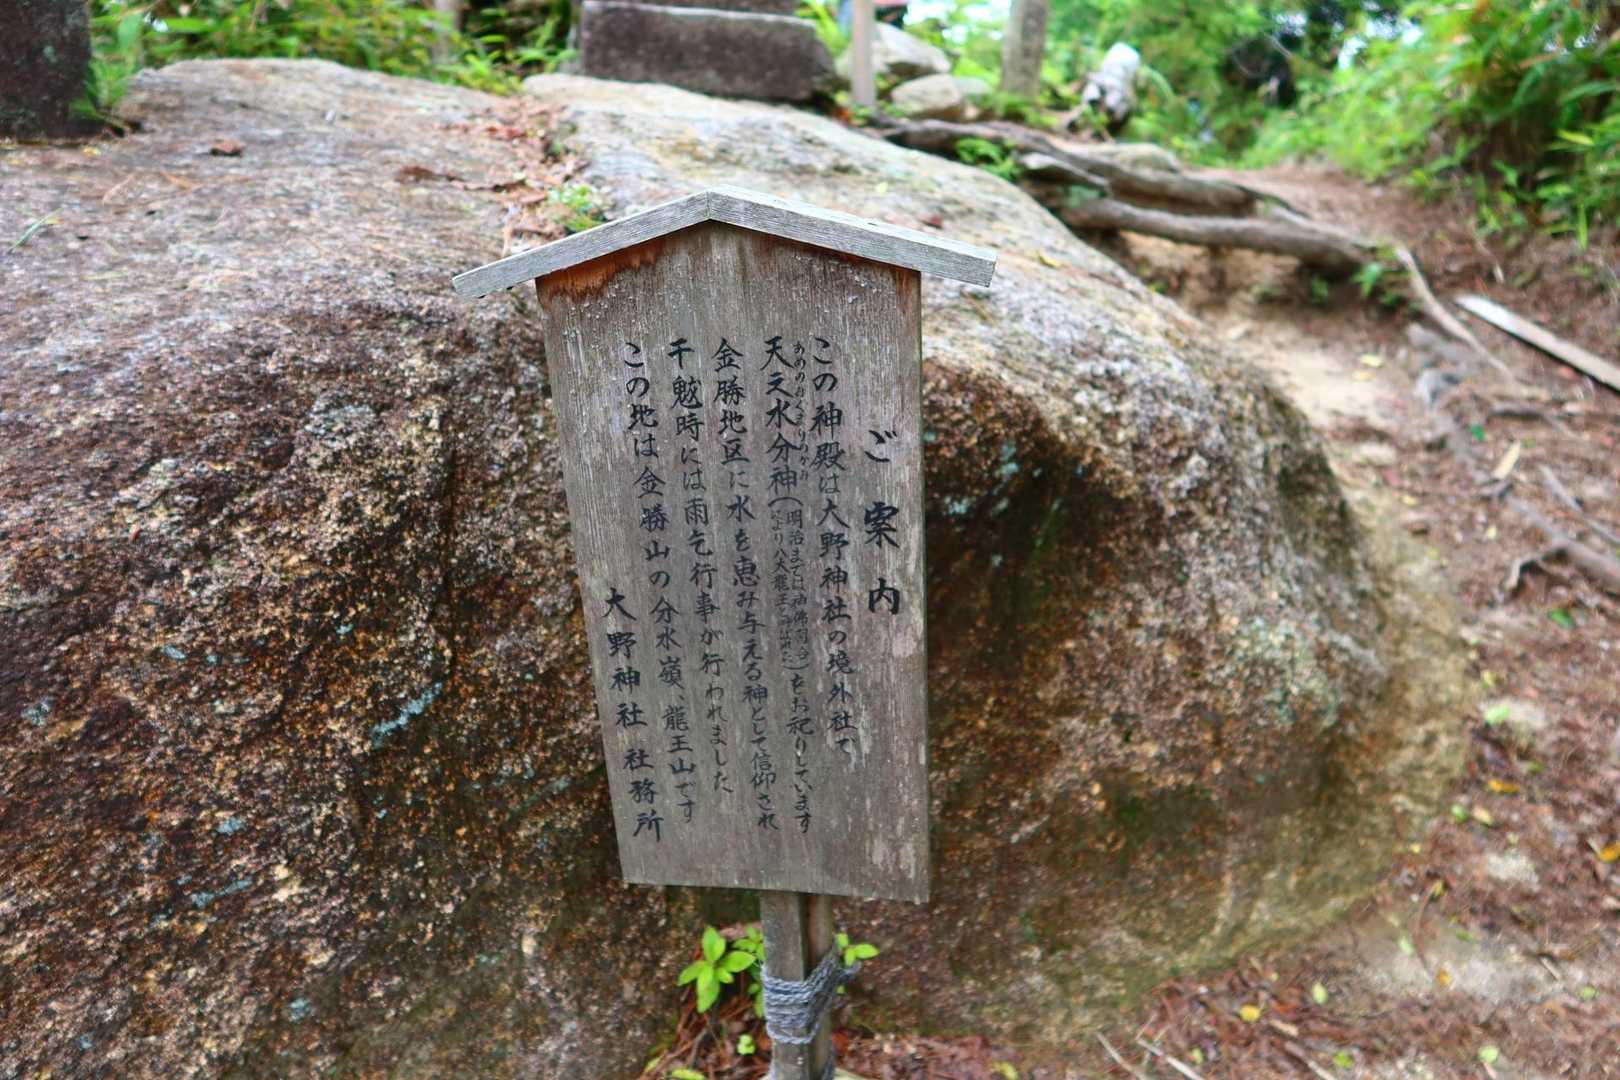 ご案内
この神殿は大野神社の境外社で
あめのみくまりのかみ
天之水分神(明治までは神佛習合により八大龍王と呼ばれた)をお祀りしています
金勝地区に水を恵み与える神として信仰され
干魃時には雨乞行事が行われました
この地は金勝山の分水嶺、龍王山です
大野神社 社務所